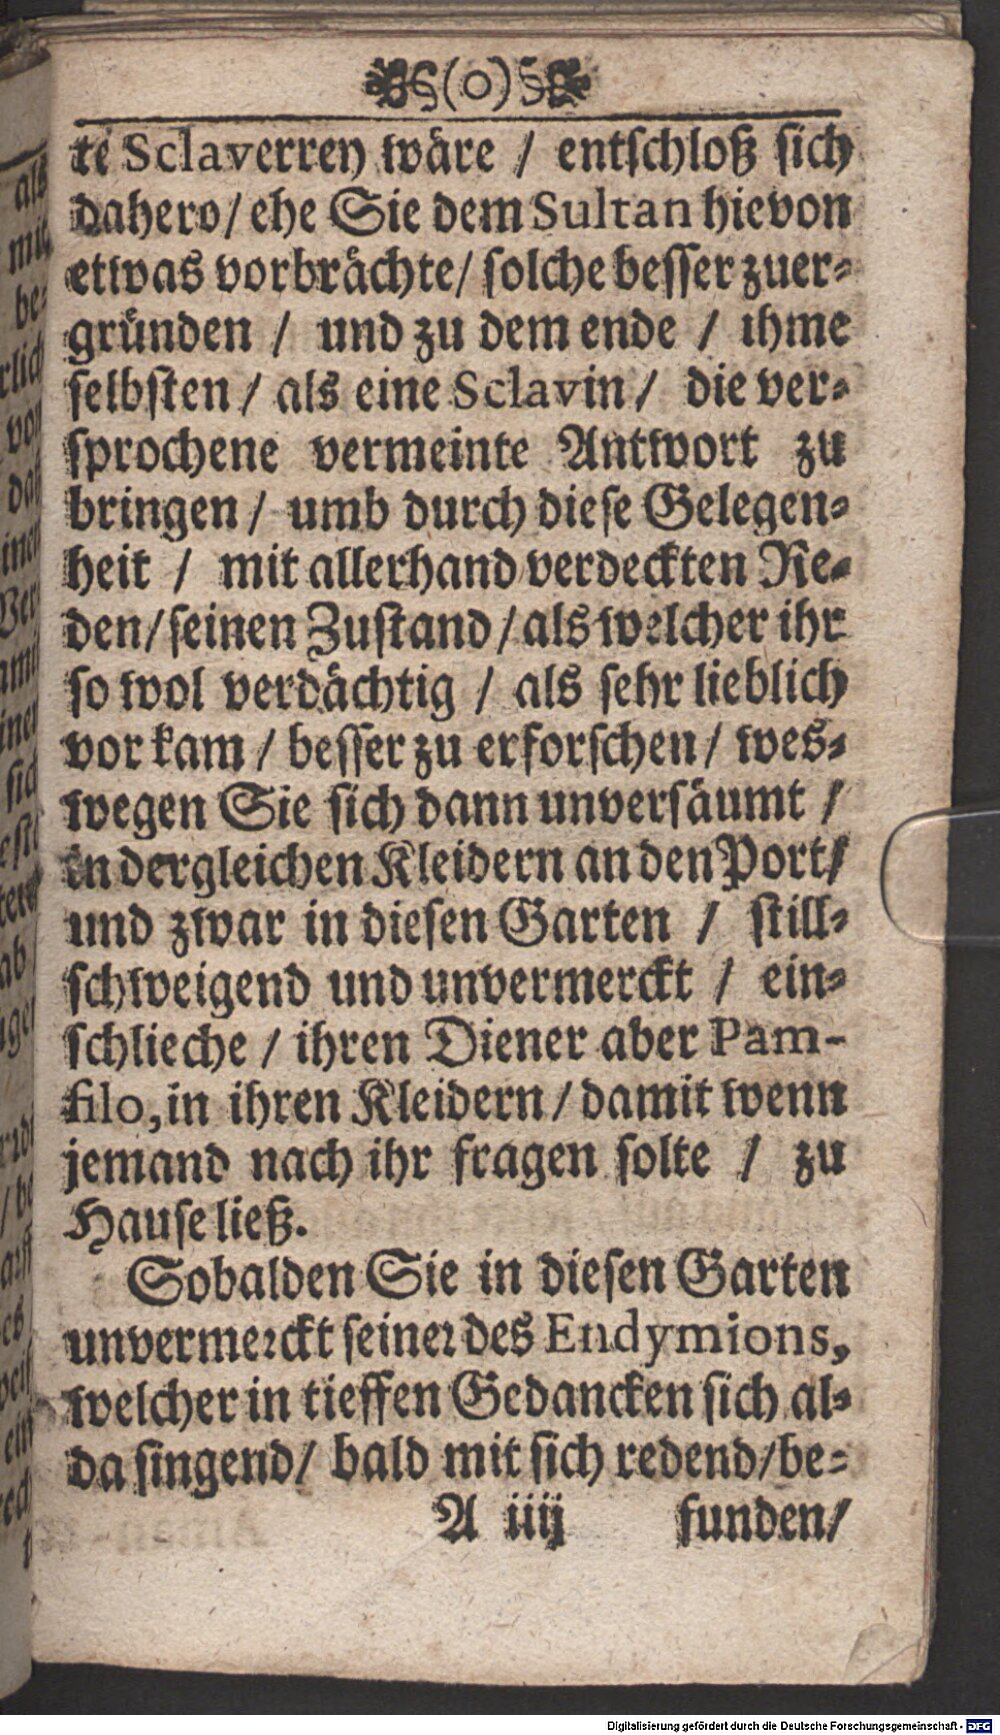 §(o)§
te Sclaverrey wäre / entschloß sich
dahero/ ehe Sie dem Sultan hievon
etwas vorbrächte/ solche besser zuer-
gründen / und zu dem ende / ihme
selbsten / als eine Sclavin / die ver-
sprochene vermeinte Antwort zu
bringen / umb durch diese Gelegen-
heit / mit allerhand verdeckten Re-
den/ seinen Zustand / als welcher ihr
so wol verdächtig / als sehr lieblich
vor kam / besser zu erforschen / wes-
wegen Sie sich dann unversäumt /
in dergleichen Kleidern an den Port/
und zwar in diesen Garten / still-
schweigend und unvermerckt / ein-
schlieche / ihren Diener aber Pam-
filo, in ihren Kleidern / damit wenn
jemand nach ihr fragen solte / zu
Hause ließ.
Sobalden Sie in diesen Garten
unvermerckt seiner des Endymions,
welcher in tieffen Gedancken sich al-
da singend/ bald mit sich redend/ be-
A iiij funden/
Digitalisierung gefördert durch die Deutsche Forschungsgemeinschaft - DFG